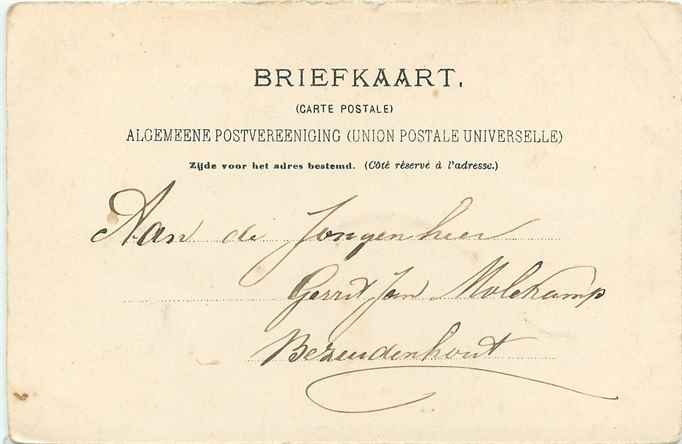 BRIEFKAART.
(CARTE POSTALE)
ALGEMEENE POSTVEREENIGING (UNION POSTALE UNIVERSELLE)
Zijde voor het adres bestemd. (Côté réservé à l'adresse.)
Aan de Jongenheer
Gerrit Jan Molekamp
Bezuidenhout